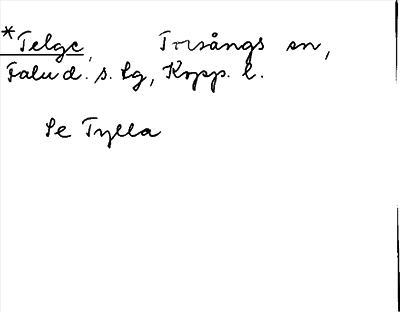 *Telge, Torsångs sn,
Falu d. s. lg, Kopp. l.
Se Tylla